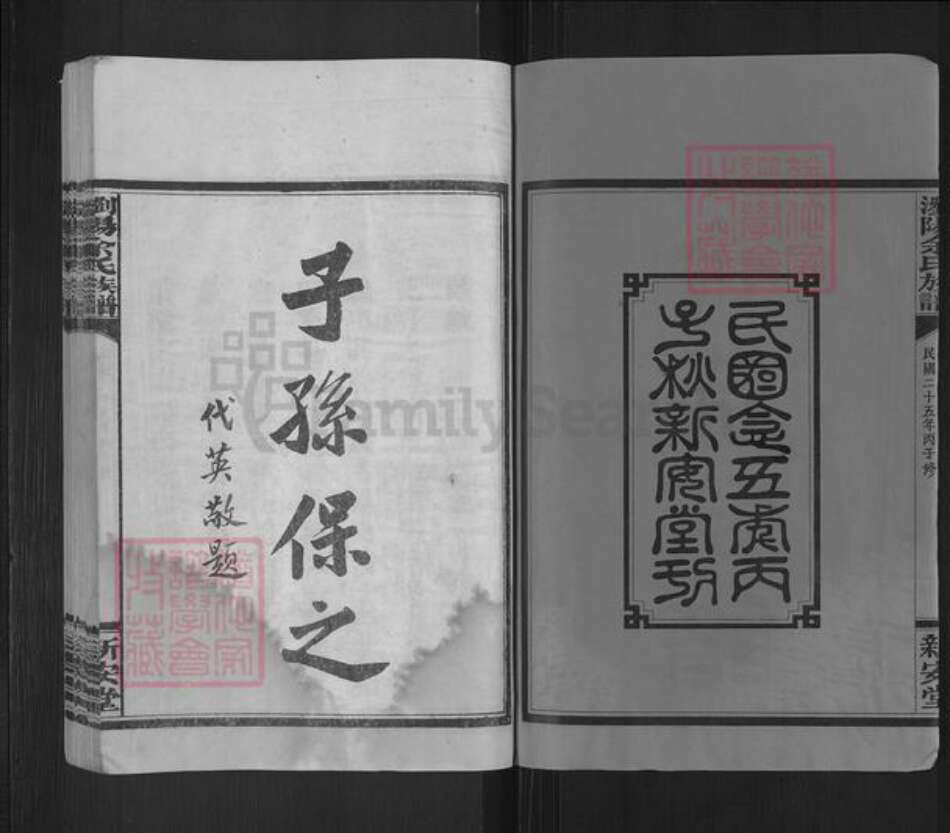 瀏陽余氏族譜
民國二十五年丙子修
新安堂
民國念五年丙
子秋新安堂刊
子孫保之
代英敬題
瀏陽余氏族譜
新安堂
FamilySea